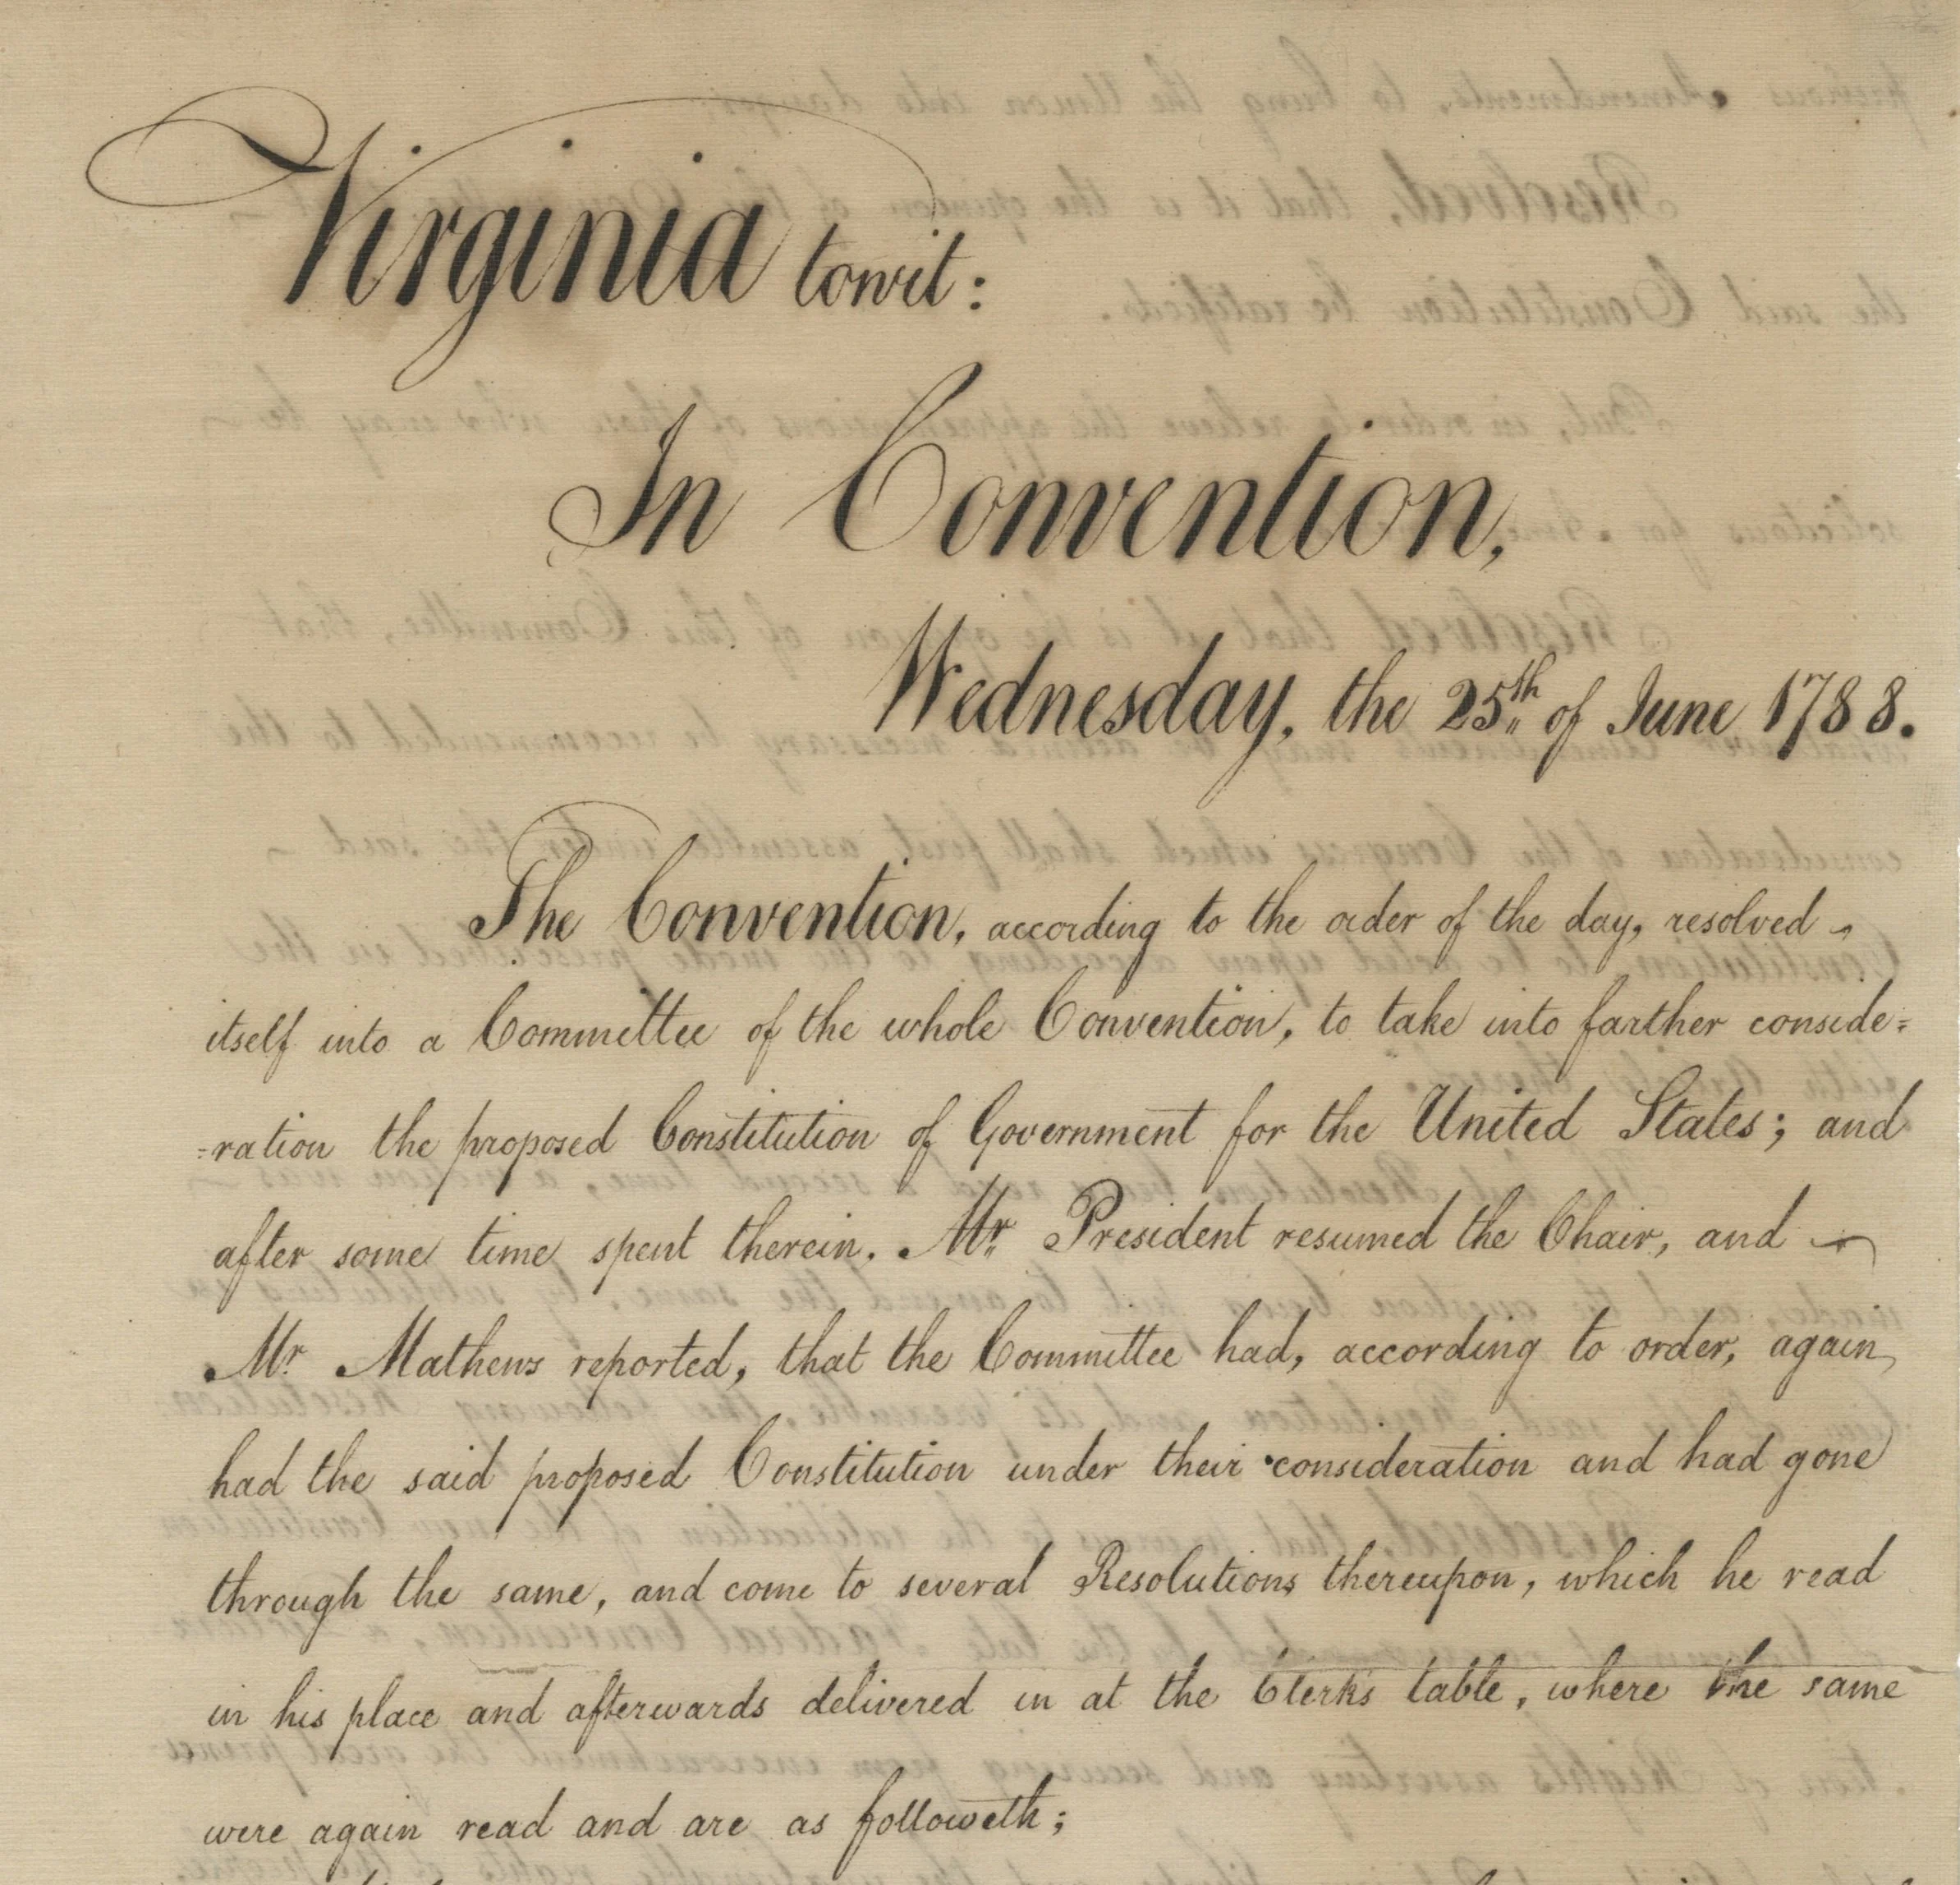 Virginia towit:
In Convention,
Wednesday, the 25th of June 1788.
The Convention, according to the order of the day, resolved
itself into a Committee of the whole Convention, to take into farther conside=
=ration the proposed Constitution of Government for the United States; and
after some time spent therein, Mr President resumed the Chair, and
Mr. Mathews reported, that the Committee had, according to order, again
had the said proposed Constitution under their consideration and had gone
through the same, and come to several Resolutions thereupon, which he read
in his place and afterwards delivered in at the Clerk's table, where the same
were again read and are as followeth;